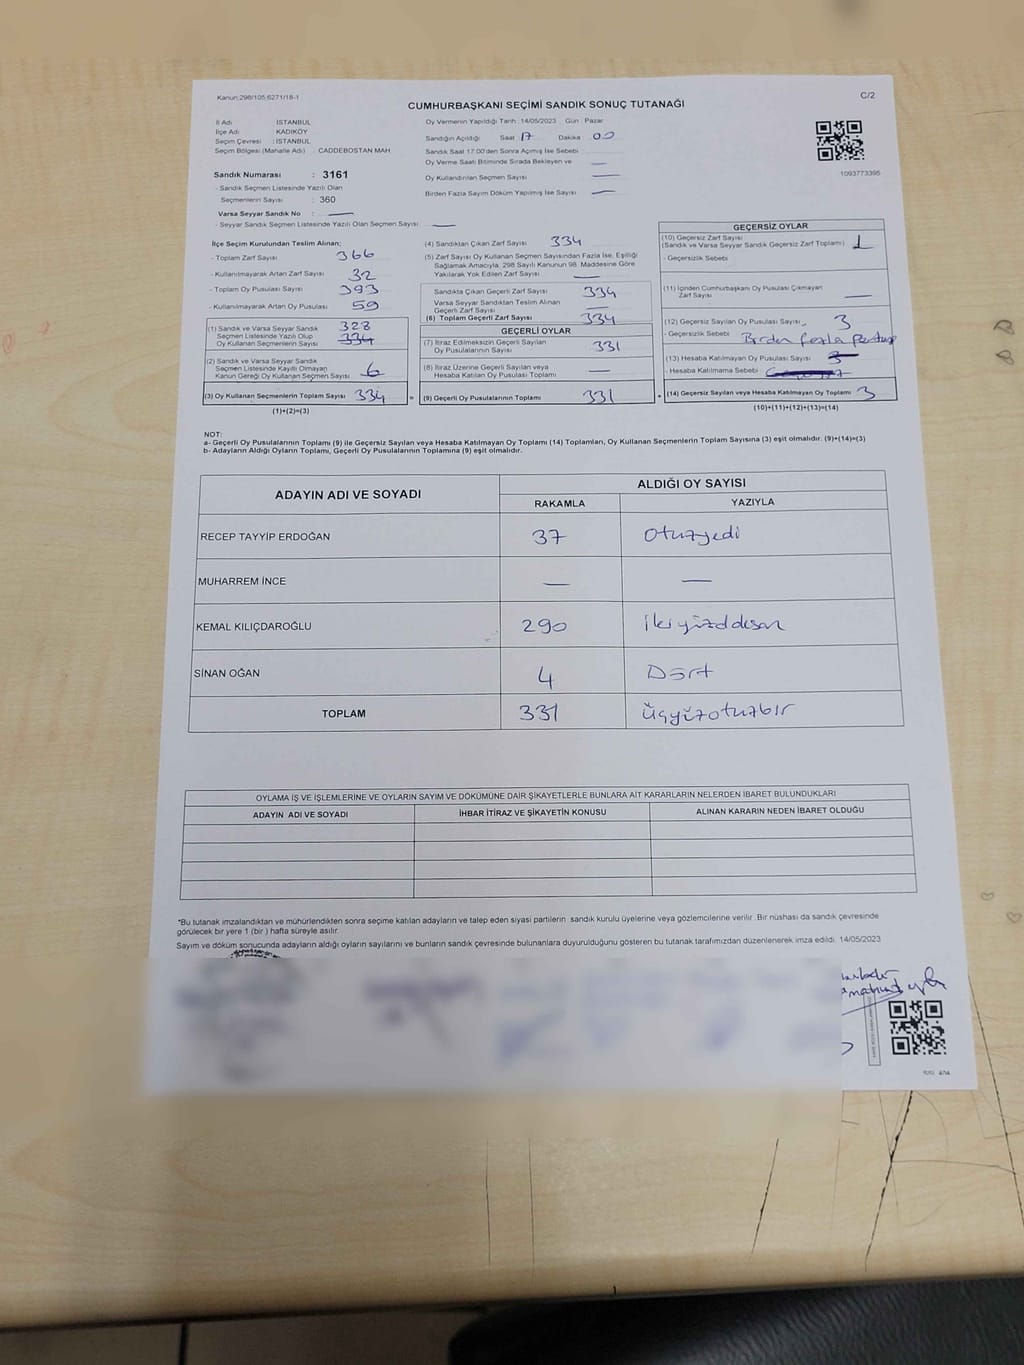 Kanun:298/105,6271/18-1
C/2
CUMHURBAŞKANI SEÇİMİ SANDIK SONUÇ TUTANAĞI
İl Adı : İSTANBUL
İlçe Adı : KADIKÖY
Seçim Çevresi : İSTANBUL
Seçim Bölgesi (Mahalle Adı) : CADDEBOSTAN MAH
Sandık Numarası : 3161
- Sandık Seçmen Listesinde Yazılı Olan
Seçmenlerin Sayısı : 360
Varsa Seyyar Sandık No : —
- Seyyar Sandık Seçmen Listesinde Yazılı Olan Seçmen Sayısı : —
Oy Vermenin Yapıldığı Tarih :14/05/2023 Gün : Pazar
Sandığın Açıldığı Saat 17 Dakika 00
Sandık Saat 17.00'den Sonra Açılmış İse Sebebi
Oy Verme Saati Bitiminde Sırada Bekleyen ve —
Oy Kullandırılan Seçmen Sayısı —
Birden Fazla Sayım Döküm Yapılmış İse Sayısı —
1093773398
İlçe Seçim Kurulundan Teslim Alınan;
- Toplam Zarf Sayısı 366
- Kullanılmayarak Artan Zarf Sayısı 32
- Toplam Oy Pusulası Sayısı 393
- Kullanılmayarak Artan Oy Pusulası 59
(1) Sandık ve Varsa Seyyar Sandık 328
Seçmen Listesinde Yazılı Olup 334
Oy Kullanan Seçmenlerin Sayısı
(2) Sandık ve Varsa Seyyar Sandık
Seçmen Listesinde Kayıtlı Olmayan 6
Kanun Gereği Oy Kullanan Seçmen Sayısı
(3) Oy Kullanan Seçmenlerin Toplam Sayısı 334 =
(1)+(2)=(3)
(4) Sandıktan Çıkan Zarf Sayısı 334
(5) Zarf Sayısı Oy Kullanan Seçmen Sayısından Fazla İse, Eşitliği
Sağlamak Amacıyla, 298 Sayılı Kanunun 98. Maddesine Göre
Yakılarak Yok Edilen Zarf Sayısı —
Sandıkta Çıkan Geçerli Zarf Sayısı 334
Varsa Seyyar Sandıktan Teslim Alınan
Geçerli Zarf Sayısı —
(6) Toplam Geçerli Zarf Sayısı 334
GEÇERLİ OYLAR
(7) İtiraz Edilmeksizin Geçerli Sayılan
Oy Pusulalarının Sayısı 331
(8) İtiraz Üzerine Geçerli Sayılan veya
Hesaba Katılan Oy Pusulası Toplamı —
(9) Geçerli Oy Pusulalarının Toplamı 331 +
GEÇERSİZ OYLAR
(10) Geçersiz Zarf Sayısı
(Sandık ve Varsa Seyyar Sandık Geçersiz Zarf Toplamı)
- Geçersizlik Sebebi
(11) İçinden Cumhurbaşkanı Oy Pusulası Çıkmayan
Zarf Sayısı —
(12) Geçersiz Sayılan Oy Pusulası Sayısı 3
- Geçersizlik Sebebi Birden fazla
(13) Hesaba Katılmayan Oy Pusulası Sayısı 3
- Hesaba Katılmama Sebebi
(14) Geçersiz Sayılan veya Hesaba Katılmayan Oy Toplamı 3
(10)+(11)+(12)+(13)=(14)
NOT:
a- Geçerli Oy Pusulalarının Toplamı (9) ile Geçersiz Sayılan veya Hesaba Katılmayan Oy Toplamı (14) Toplamları, Oy Kullanan Seçmenlerin Toplam Sayısına (3) eşit olmalıdır. (9)+(14)=(3)
b- Adayların Aldığı Oyların Toplamı, Geçerli Oy Pusulalarının Toplamına (9) eşit olmalıdır.
ADAYIN ADI VE SOYADI
ALDIĞI OY SAYISI
RAKAMLA YAZIYLA
RECEP TAYYİP ERDOĞAN 37 otuzyedi
MUHARREM İNCE — —
KEMAL KILIÇDAROĞLU 290 ikiyüzdoksan
SİNAN OĞAN 4 Dört
TOPLAM 331 üçyüzotuzbir
OYLAMA İŞ VE İŞLEMLERİNE VE OYLARIN SAYIM VE DÖKÜMÜNE DAİR ŞİKAYETLERLE BUNLARA AİT KARARLARIN NELERDEN İBARET BULUNDUKLARI
ADAYIN ADI VE SOYADI İHBAR İTİRAZ VE ŞİKAYETİN KONUSU ALINAN KARARIN NEDEN İBARET OLDUĞU
*Bu tutanak imzalandıktan ve mühürlendikten sonra seçime katılan adayların ve talep eden siyasi partilerin sandık kurulu üyelerine veya gözlemcilerine verilir. Bir nüshası da sandık çevresinde
görülecek bir yere 1 (bir ) hafta süreyle asılır.
Sayım ve döküm sonucunda adayların aldığı oyların sayılarını ve bunların sandık çevresinde bulunanlara duyurulduğunu gösteren bu tutanak tarafımızdan düzenlenerek imza edildi. 14/05/2023